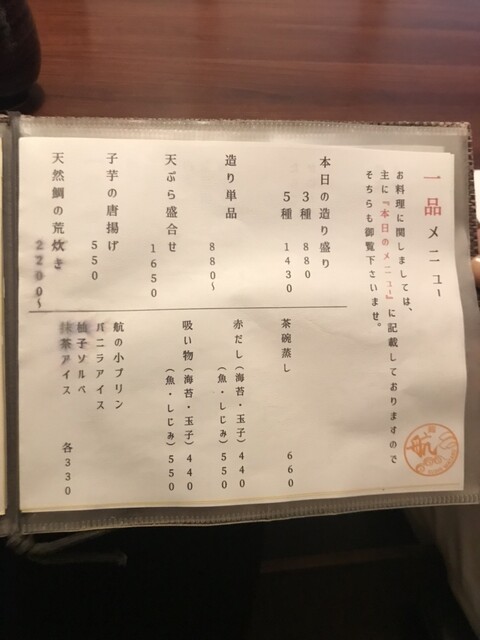 一品メニュー
お料理に関しましては、
主に『本日のメニュー』に記載しておりますので
そちらも御覧下さいませ。
本日の造り盛り
3種 880
5種 1430
造り単品
880～
天ぷら盛合せ
1650
子芋の唐揚げ
550
天然鯛の荒炊き
2200～
茶碗蒸し
660
赤だし(海苔・玉子)440
(魚・しじみ)550
吸い物(海苔・玉子)440
(魚・しじみ)550
航の小プリン
バニラアイス
柚子ソルベ
抹茶アイス
各330